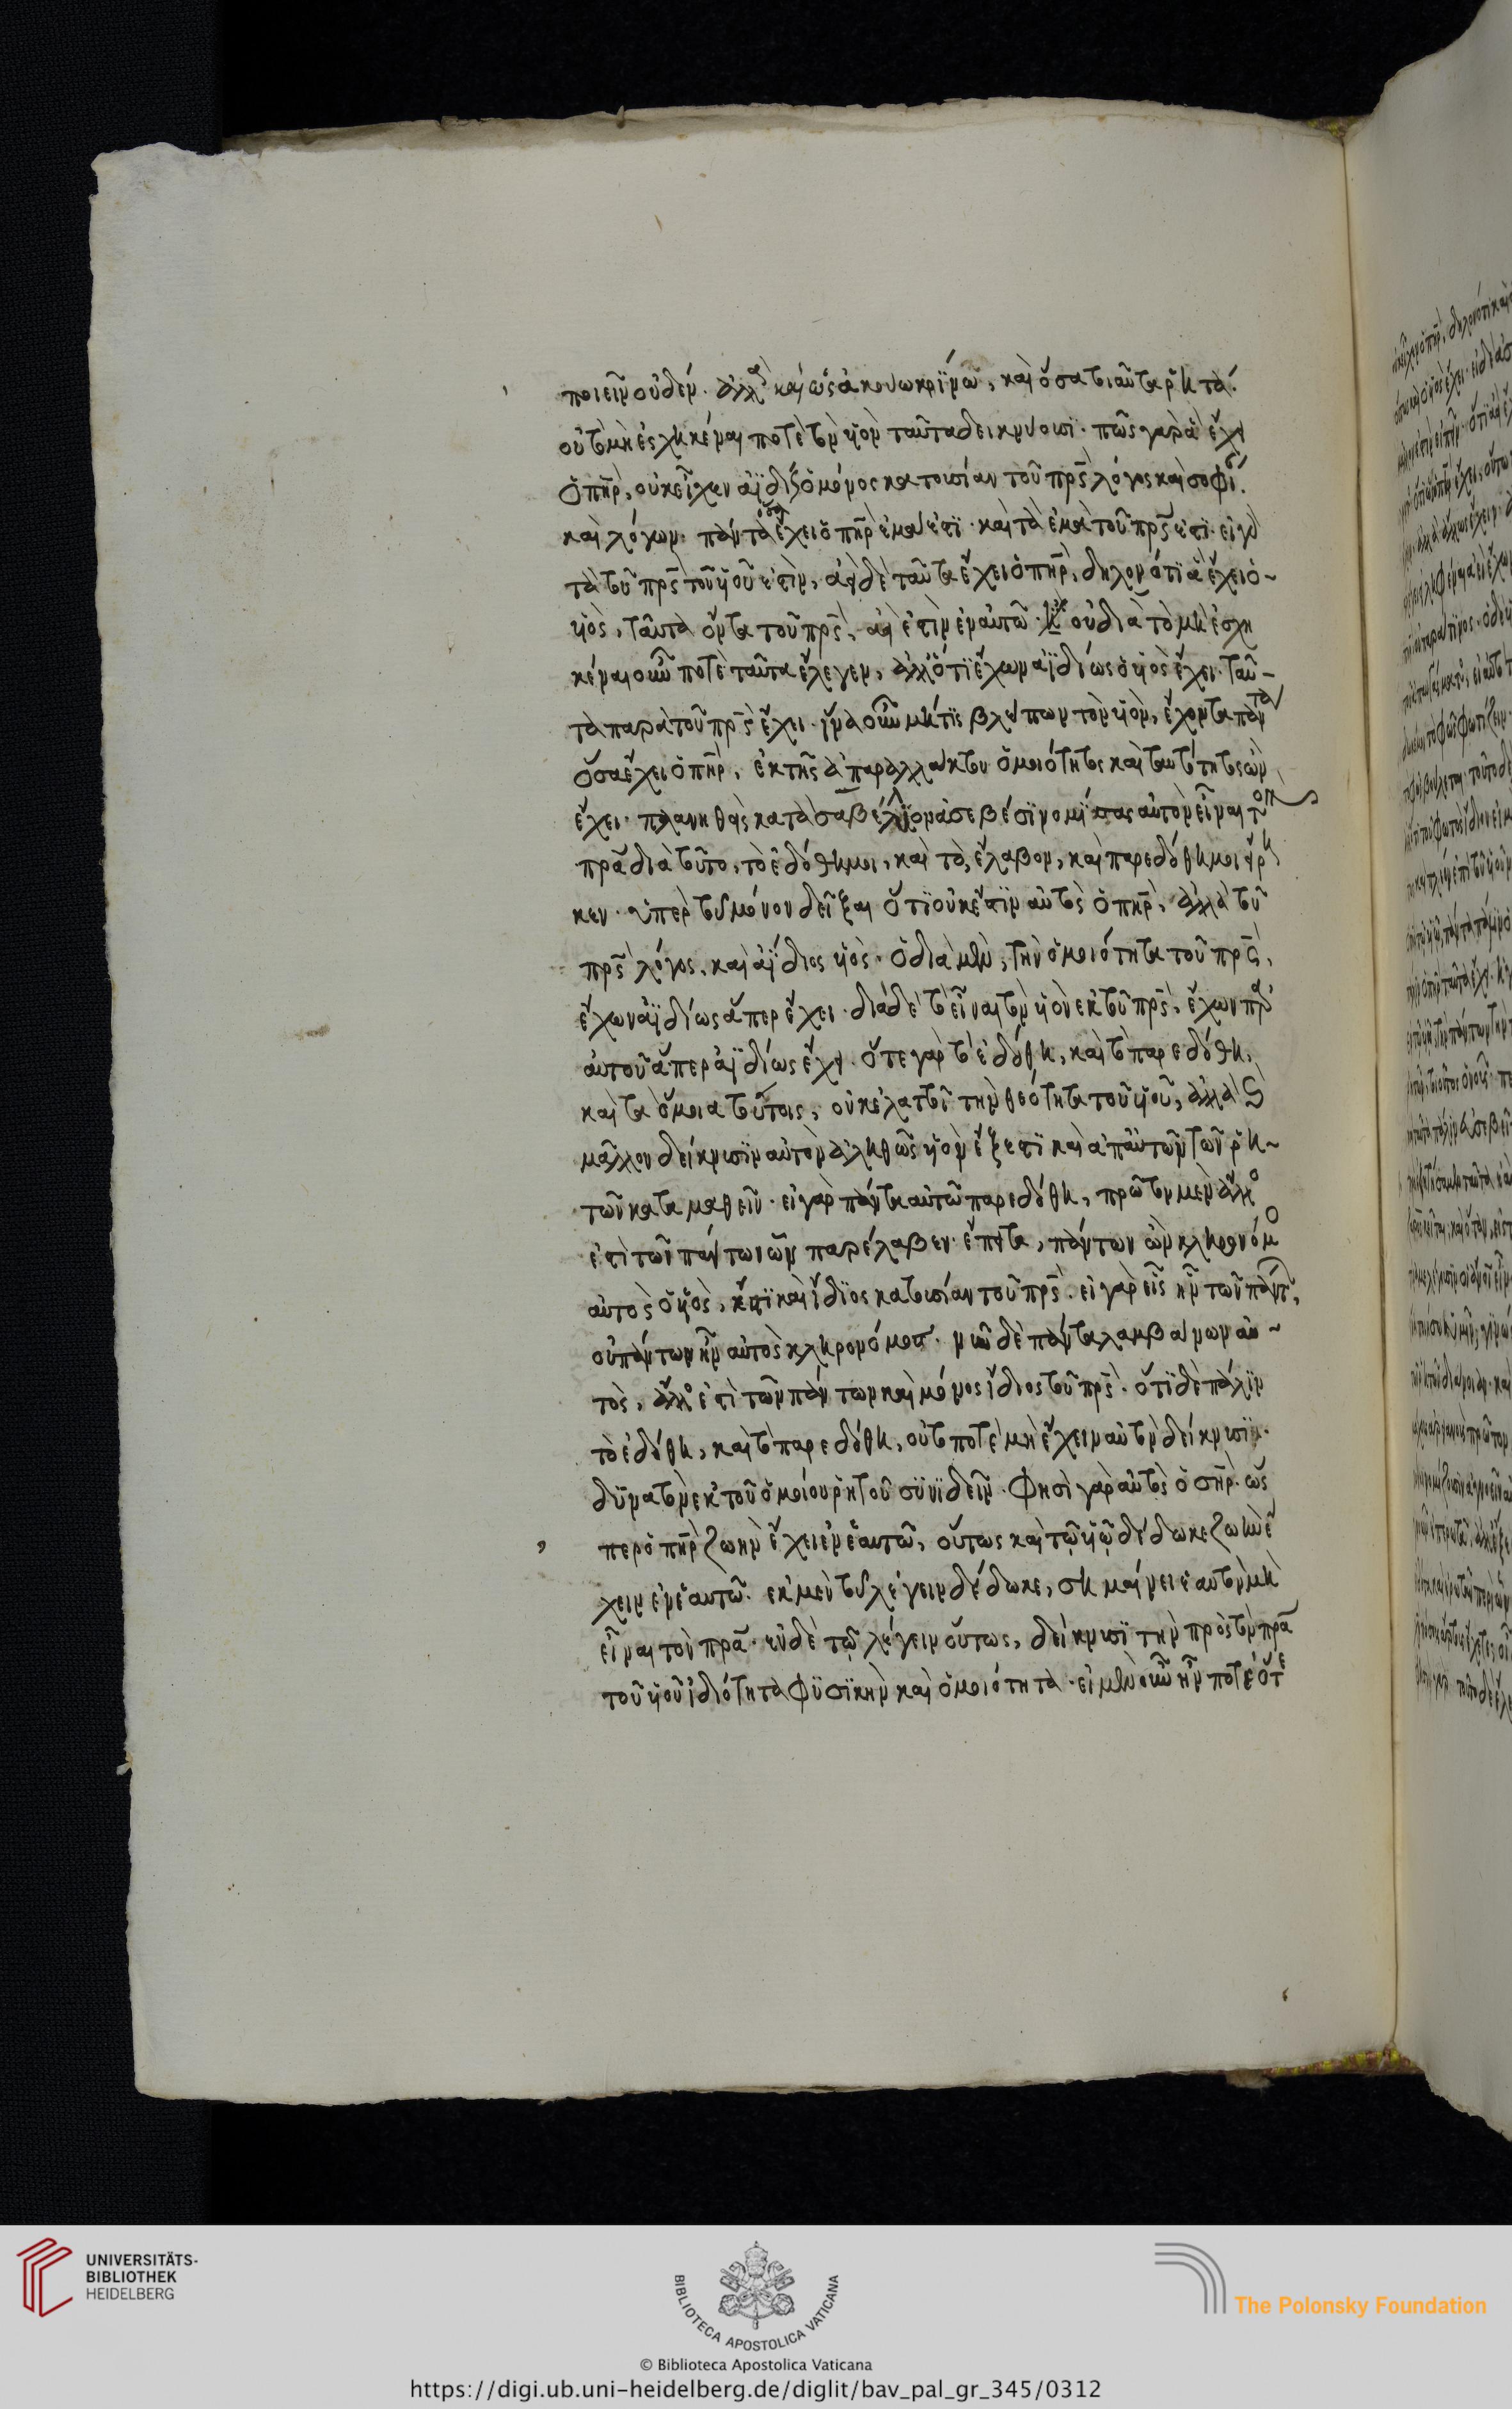 ποιεῖν οὐδέν. ἀλλὰ καὶ ὡς ἀκούω κρίνω, καὶ ὅσα τοιαῦτα ῥητά.
οὐ τὸ μὴ ἐσχηκέναι ποτὲ τὸν υἱὸν ταῦτα δεικνύουσι. πῶς γὰρ ἃ ἔχει
ὁ πηρ, οὐκ εἶχεν ἀϊδίως ὁ μόνος κατουσίαν τοῦ πρς λόγος καὶ σοφία.
καὶ λέγων. πάντα ὅσα ἔχει ὁ πηρ ἐμά ἐστι. καὶ τὰ ἐμὰ τοῦ πρς ἐστι. εἰ γὰρ
τὰ τοῦ πρς τοῦ υἱοῦ ἐστιν, ἀεὶ δὲ ταῦτα ἔχει ὁ πηρ, δῆλον ὅτι ἃ ἔχει ὁ
υἱὸς, ταῦτα ὄντα τοῦ πρς, ἀεὶ ἐστιν ἐν αὐτῶ. οὐ διὰ τὸ μὴ ἐσχη
κέναι οὖν ποτὲ ταῦτα ἔλεγεν, ἀλλ' ὅτι ἔχων ἀϊδίως ὁ υἱὸς ἔχει. ταῦ-
τα παρὰ τοῦ πρς ἔχει. ἵνα οὖν μήτις βλέπων τὸν υἱὸν, ἔχοντα πάντα
ὅσα ἔχει ὁ πηρ, ἐκ τῆς ἀπαραλλάκτου ὁμοιότητος καὶ ταυτότητος ὧν
ἔχει. πλανηθεὶς κατὰ σαβέλλιον ἀσεβέσι νομίσας αὐτὸν εἶναι τὸν
πρα διὰ τοῦτο, τὸ ἐδόθη μοι, καὶ τὸ, ἔλαβον, καὶ παρεδόθη μοι εἴρη
κεν. ὑπὲρ τοῦ μόνον δεῖξαι ὅτι οὐκ ἔστιν αὐτὸς ὁ πηρ, ἀλλὰ τοῦ
πρς λόγος, καὶ ἀΐδιος υἱὸς. ὃ διὰ μὲν, τὴν ὁμοιότητα τοῦ πρς,
ἔχων ἀϊδίως ἅπερ ἔχει. διὰ δὲ τὸ εἶναι τὸν υἱὸν ἐκ τοῦ πρς, ἔχων παρ'
αὐτοῦ ἅπερ ἀϊδίως ἔχει. ὅτε γὰρ τὸ ἐδόθη, καὶ τὸ παρεδόθη,
καὶ τὰ ὅμοια τούτοις, οὐκ ἐλαττοῖ τὴν θεότητα τοῦ υἱοῦ, ἀλλὰ καὶ
μᾶλλον δείκνυσιν αὐτὸν ἀληθῶς υἱὸν ἔξεστι καὶ ἀπαὐτῶν τῶν ῥη-
τῶν καταμαθεῖν. εἰ γὰρ πάντα αὐτῶ παρεδόθη, πρῶτον μὲν ἄλλος
ἐστὶ τῶν πάντων ὧν παρέλαβεν. ἔπειτα, πάντων ὢν κληρονόμος
αὐτὸς ὁ υἱὸς, ἔστι καὶ ἴδιος κατουσίαν τοῦ πρς. εἰ γὰρ εἷς ἦν τῶν πάντων,
οὐ πάντων ἦν αὐτὸς κληρονόμος. νῦν δὲ πάντα λαμβάνων αὐ-
τὸς, ἄλλος ἐστὶ τῶν πάντων καὶ μόνος ἴδιος τοῦ πρς. ὅτι δὲ πάλιν
τὸ ἐδόθη, καὶ τὸ παρεδόθη, οὔ τὸ ποτὲ μὴ ἔχειν αὐτὸν δείκνυσιν.
δύνατον ἐκ τοῦ ὁμοίου ῥητοῦ συνιδεῖν. φησὶ γὰρ αὐτὸς ὁ σηρ. ὥσ
περ ὁ πηρ ζωὴν ἔχει ἐν ἑαυτῶ, οὕτως καὶ τῷ υἱῷ δέδωκε ζωὴν ἔ
χειν ἐν ἑαυτῶ. ἐκ μὲν τοῦ λέγειν δέδωκε, σημαίνει ἑαυτὸν μὴ
εἶναι τὸν πρα. ἐν δὲ τῷ λέγειν οὕτως, δείκνυσι τὴν πρὸς τὸν πρα
τοῦ υἱοῦ ἰδιότητα φυσικὴν καὶ ὁμοιότητα. εἰ μὲν οὖν ἦν ποτὲ ὅτε
UNIVERSITÄTS-
BIBLIOTHEK
HEIDELBERG
BIBLIOTECA APOSTOLICA VATICANA
© Biblioteca Apostolica Vaticana
The Polonsky Foundation
https://digi.ub.uni-heidelberg.de/diglit/bav_pal_gr_345/0312